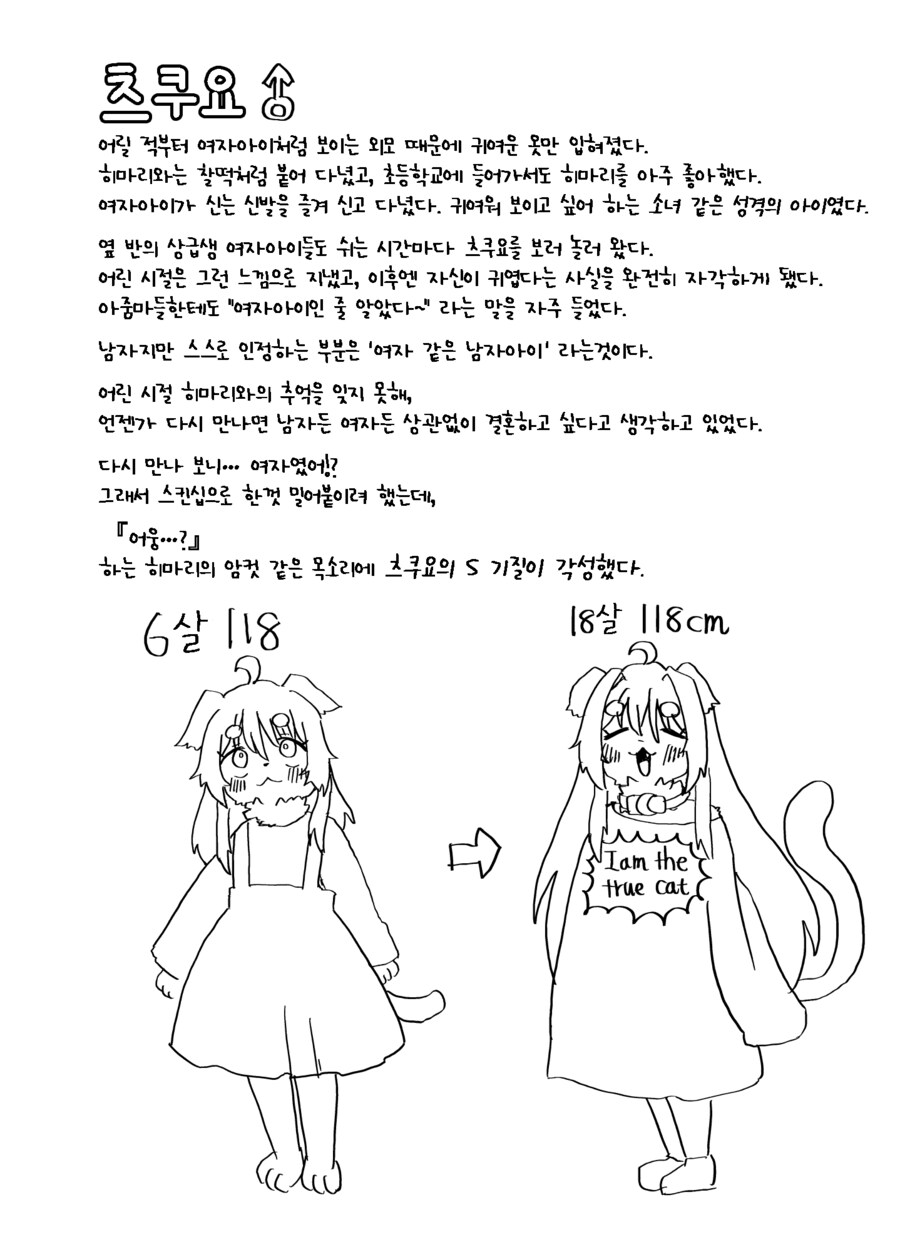 츠쿠요 ♂
어릴 적부터 여자아이처럼 보이는 외모 때문에 귀여운 옷만 입혀졌다.
히마리와는 찰떡처럼 붙어 다녔고, 초등학교에 들어가서도 히마리를 아주 좋아했다.
여자아이가 신는 신발을 즐겨 신고 다녔다. 귀여워 보이고 싶어 하는 소녀 같은 성격의 아이였다.
옆 반의 상급생 여자아이들도 쉬는 시간마다 츠쿠요를 보러 놀러 왔다.
어린 시절은 그런 느낌으로 지냈고, 이후엔 자신이 귀엽다는 사실을 완전히 자각하게 됐다.
아줌마들한테도 "여자아이인 줄 알았다~" 라는 말을 자주 들었다.
남자지만 스스로 인정하는 부분은 '여자 같은 남자아이' 라는것이다.
어린 시절 히마리와의 추억을 잊지 못해,
언젠가 다시 만나면 남자든 여자든 상관없이 결혼하고 싶다고 생각하고 있었다.
다시 만나 보니… 여자였어!?
그래서 스킨십으로 한껏 밀어붙이려 했는데,
『어웅…?』
하는 히마리의 암컷 같은 목소리에 츠쿠요의 S 기질이 각성했다.
6살 118
18살 118cm
I am the
true cat